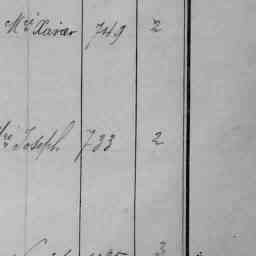 Mre Xavier 749 2
re Joseph 733 2
3